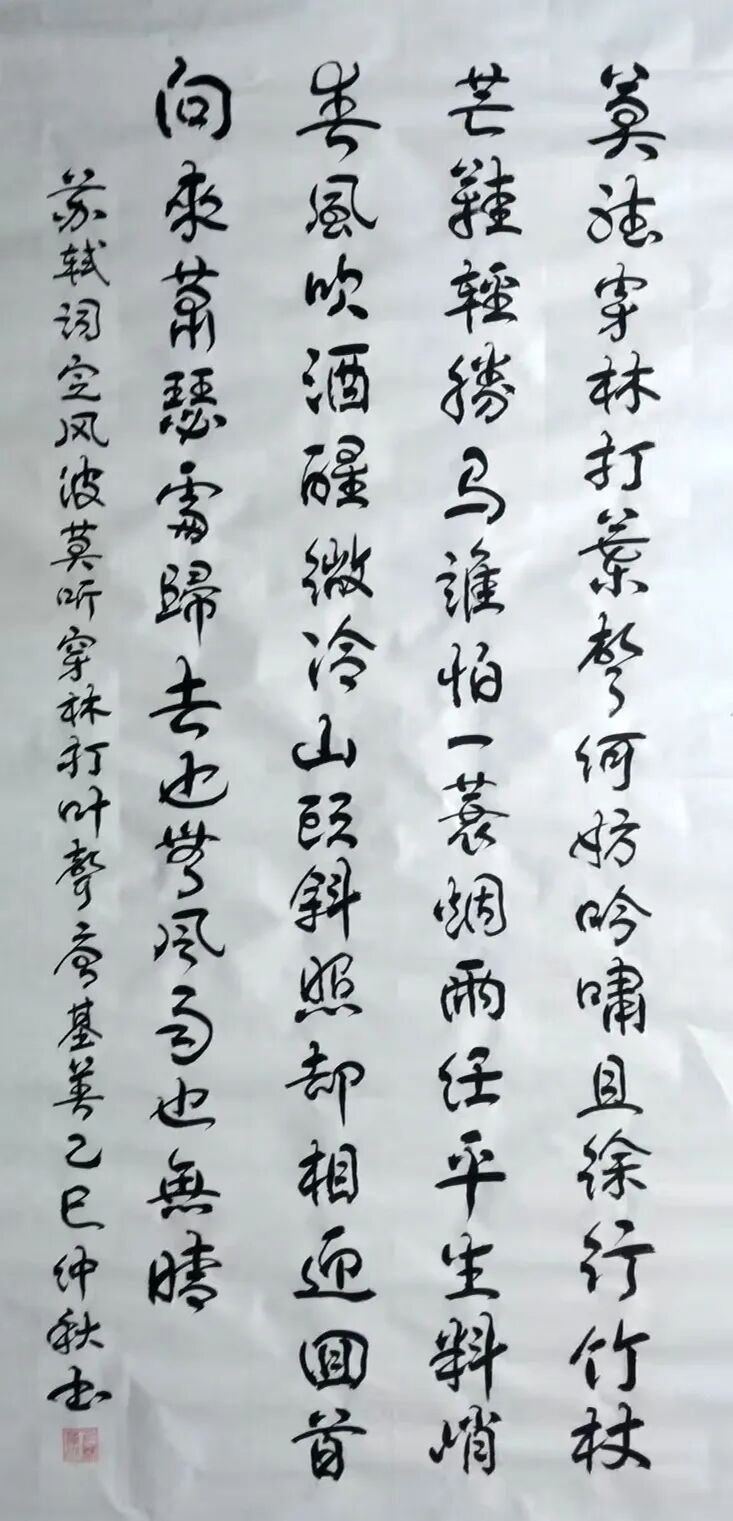 莫聽穿林打葉聲何妨吟嘯且徐行竹杖
芒鞋輕勝馬誰怕一蓑烟雨任平生料峭
春風吹酒醒微冷山頭斜照却相迎回首
向來蕭瑟處歸去也無風雨也無晴
苏轼词定风波莫听穿林打叶聲唐基善乙巳仲秋书